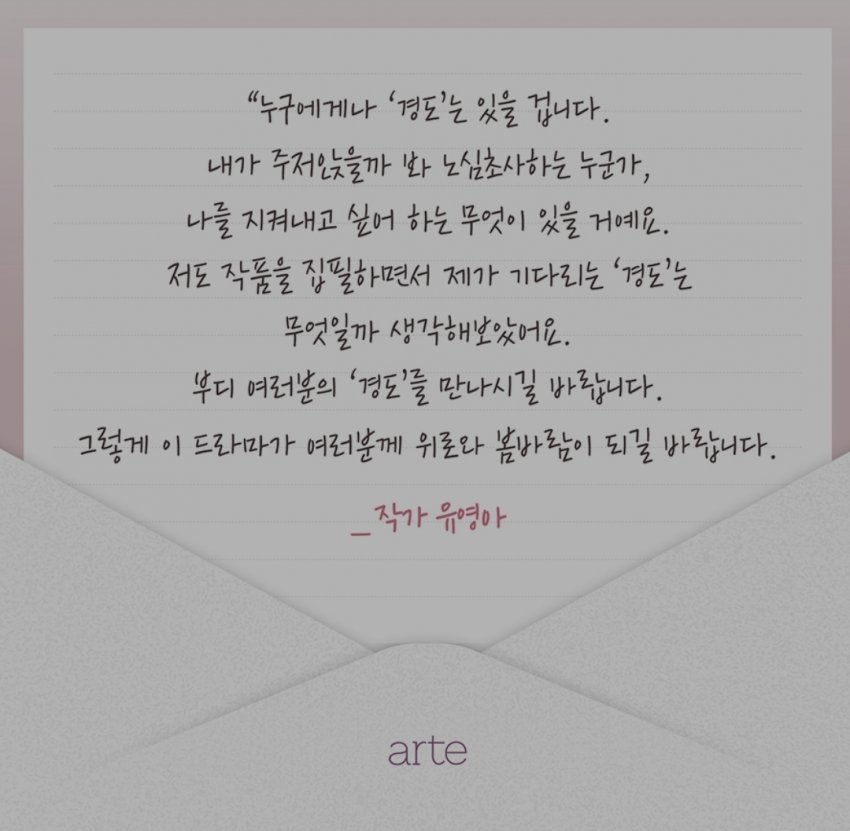 “누구에게나 ‘경도’는 있을 겁니다.
내가 주저앉을까 봐 노심초사하는 누군가,
나를 지켜내고 싶어 하는 무엇이 있을 거예요.
저도 작품을 집필하면서 제가 기다리는 ‘경도’는
무엇일까 생각해보았어요.
부디 여러분의 ‘경도’를 만나시길 바랍니다.
그렇게 이 드라마가 여러분께 위로와 봄바람이 되길 바랍니다.
_작가 유영아
arte